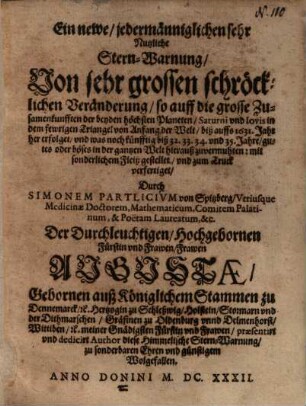 N. 110
Ein newe/ jedermänniglichen sehr
Nutzliche
Stern-Warnung/
Von sehr grossen schröck-
lichen Veränderung/ so auff die grosse Zu-
samenkunfften der beyden höchsten Planeten/ Saturni und Iovis in
dem fewrigen Triangel von Anfang der Welt/ biß auffs 1631. Jahr
her erfolget/ und was noch künfftig biß 32. 33. 34. und 35. Jahre/ gu-
tes oder böses in der gantzen Welt hierauß zuvermuthen: mit
sonderlichem Fleiß gestellet/ und zum Truck
verfertiget/
Durch
SIMONEM PARTLICIVM von Spitzberg/ Vtriusque
Medicinæ Doctorem, Mathematicum, Comitem Palati-
num, & Poëtam Laureatum, &c.
Der Durchleuchtigen/ Hochgebornen
Fürstin und Frawen/ Frawen
AVGVSTÆ/
Gebornen auß Königlichem Stammen zu
Dennemarck/ ꝛc. Hertzogin zu Schleßwig/ Holstein/ Stormarn und
der Dithmarschen/ Gräffinen zu Oldenburg unnd Delmenhorst/
Wittiben/ ꝛc. meiner Gnädigsten Fürstin und Frawen/ præsentirt
und dedicirt Author diese Himmelische Stern-Warnung/
zu sonderbaren Ehren und günstigem
Wolgefallen.
ANNO DONINI M. DC. XXXII.